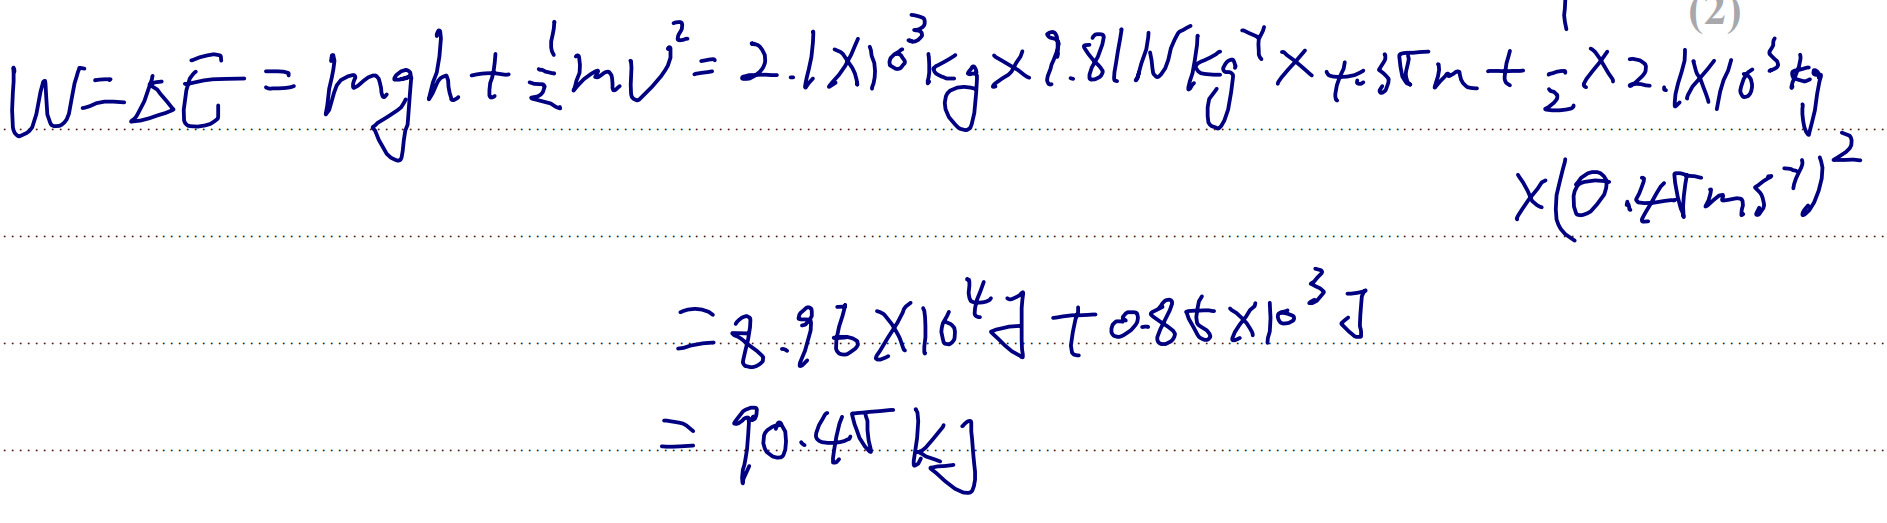 (2)
W=ΔE = mgh + ½mv² = 2.1×10³kg×9.81Nkg⁻¹×4.35m+½×2.1×10³kg
×(0.45ms⁻¹)²
=8.96×10⁴J+0.85×10³J
=90.45kJ